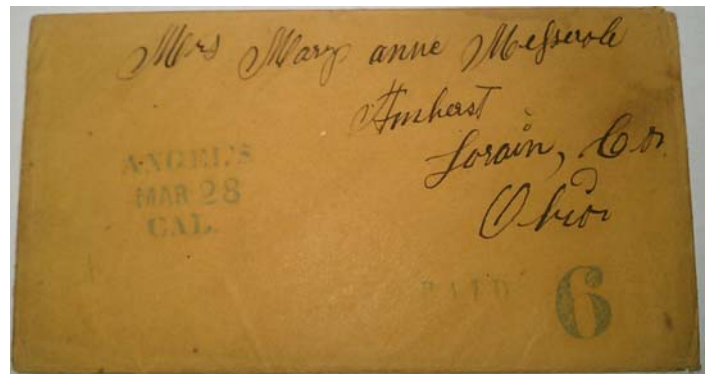 Mrs Mary anne Messerole
Amherst
Lorain, Co.
Ohio
ANGEL'S
MAR 28
CAL.
PAID 6